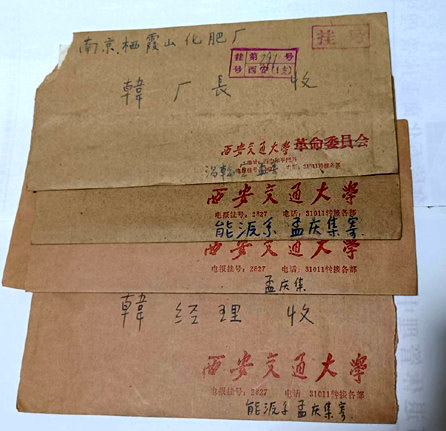 南京栖霞山化肥厂
挂号
挂 第 791 号
号 西安(1支)
韓 厂長 收
西安交通大学革命委员会
电话:31011转接各部
西安交通大学
电报挂号:2827 电话:31011转接各部
能源系 孟庆集寄
西安交通大学
电报挂号:2827 电话:31011转接各部
孟庆集
韓 经理 收
西安交通大学
电报挂号:2827 电话:31011转接各部
能源系 孟庆集寄